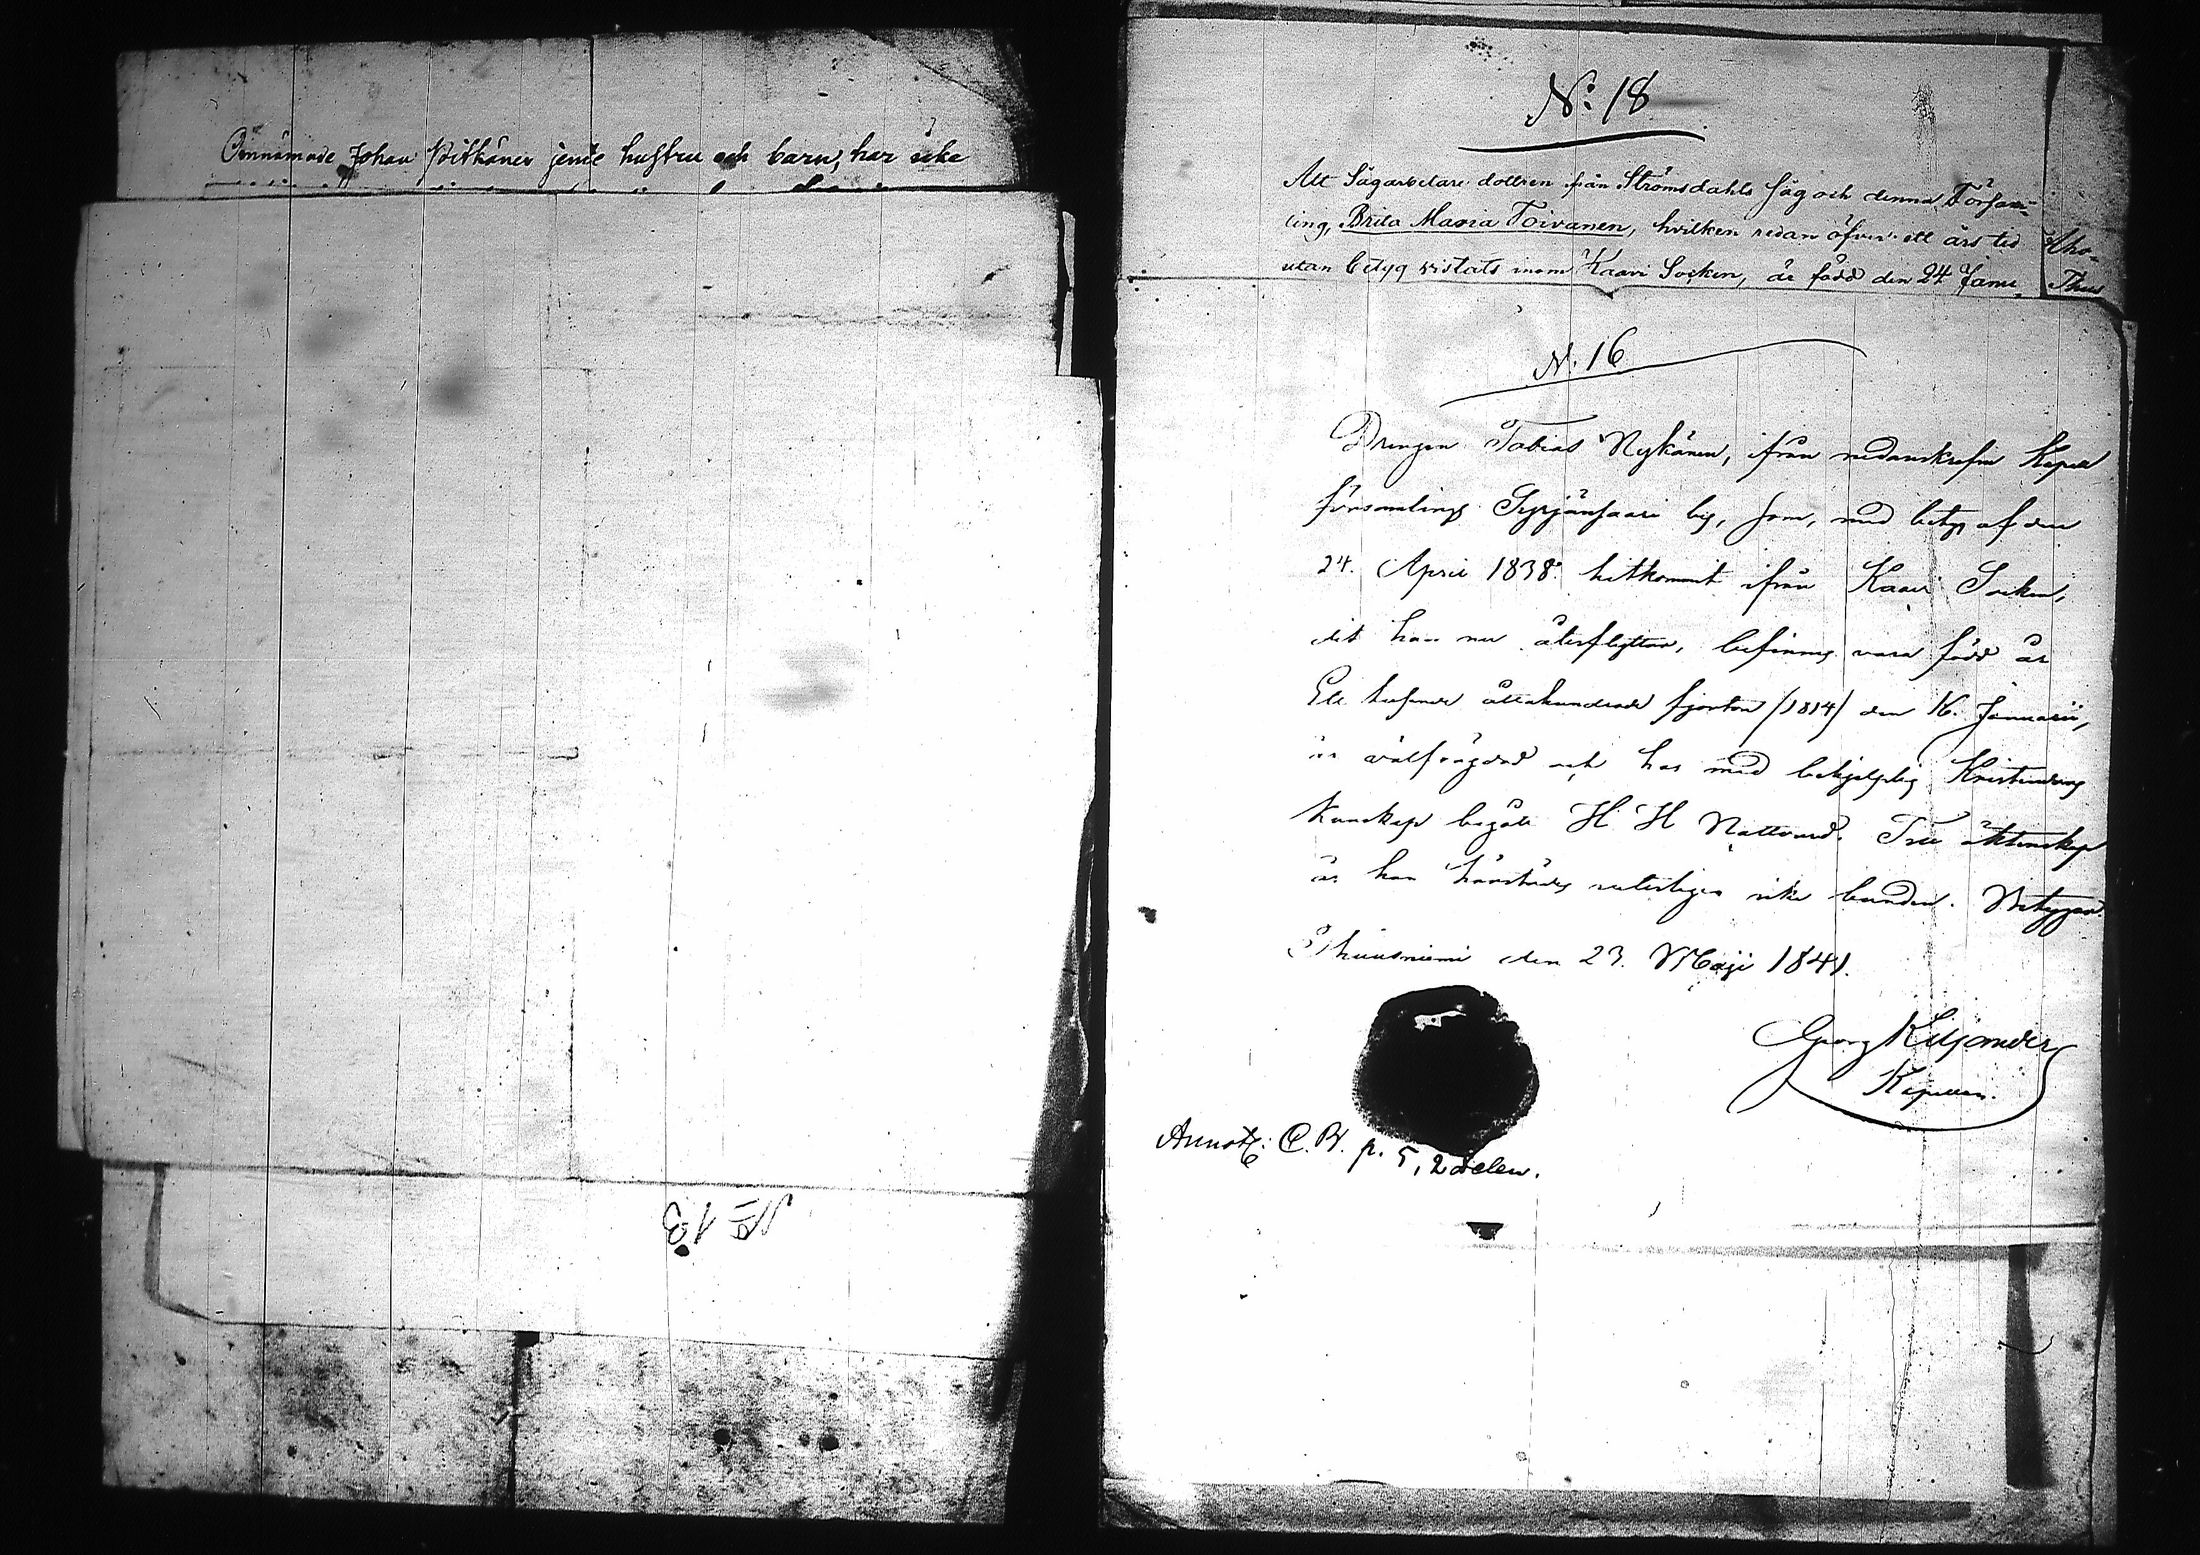 Omnämnde Johan Pitkänen jemte hustru och barn, har icke
№ 13
№ 18
Att Sågarbetare dottren från Strömsdahls såg och denna Församling, Brita Maria Toivanen, hvilken redan öfver ett års tid
utan betyg vistats inom Kaavi Socken, är född den 24 Janu
Tho-
Thus
N. 16
Drengen Tobias Nykänen, ifrån nedanskrefne Kapell
församlings Syrjänsaari by, som, med betyg af den
24. April 1838. hitkommit ifrån Kaavi Socken,
dit han nu återflyttar, befinnes vara född år
Ett tusende åttahundrade fjorton (1814) den 16. Januarii,
är välfrägdad och har med behjelplig Kristendoms
kunskap begått H H Nattvard. Till äktenskap
är han härstädes veterligen icke bunden. Betygar
Thuusniemi den 23. Maji 1841.
Georg Kiljander
Kapellan.
Annot: C. B. p. 5, 2 delen.